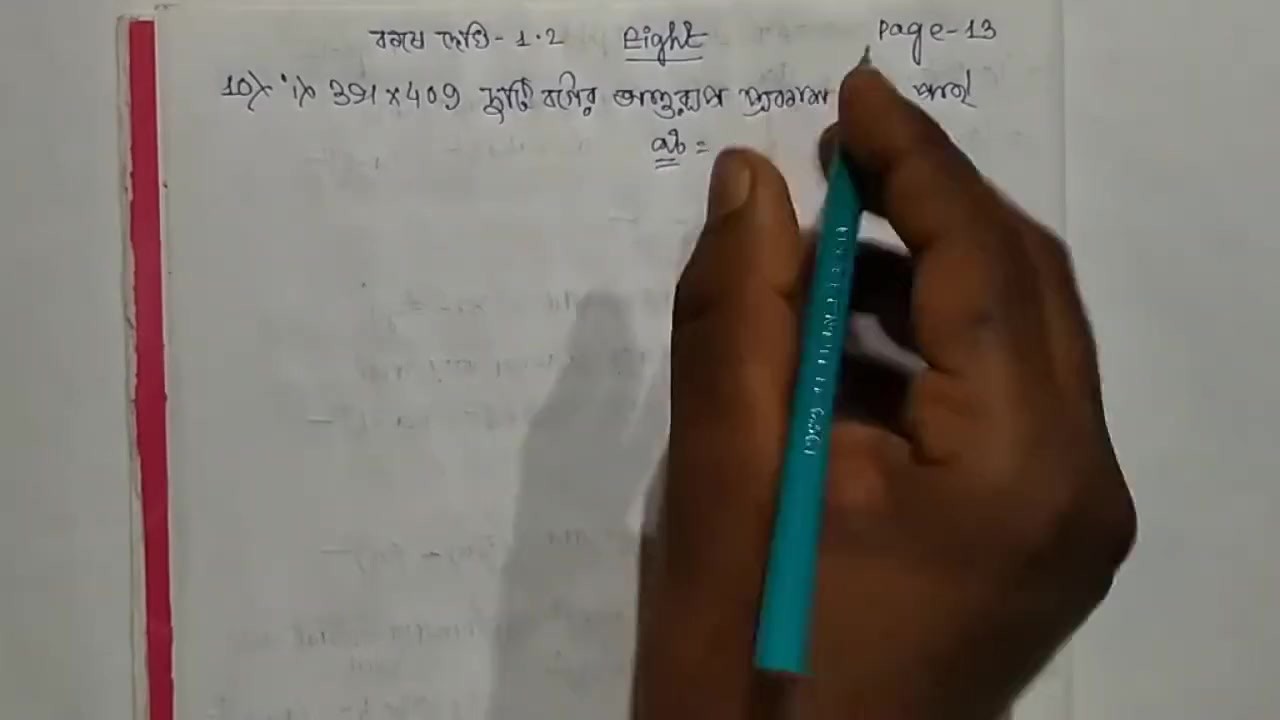 কষে দেখি - 1.2 Eight Page-13
10) i) 391 × 409 দুটি বর্গের অন্তররূপে প্রকাশ
ab =